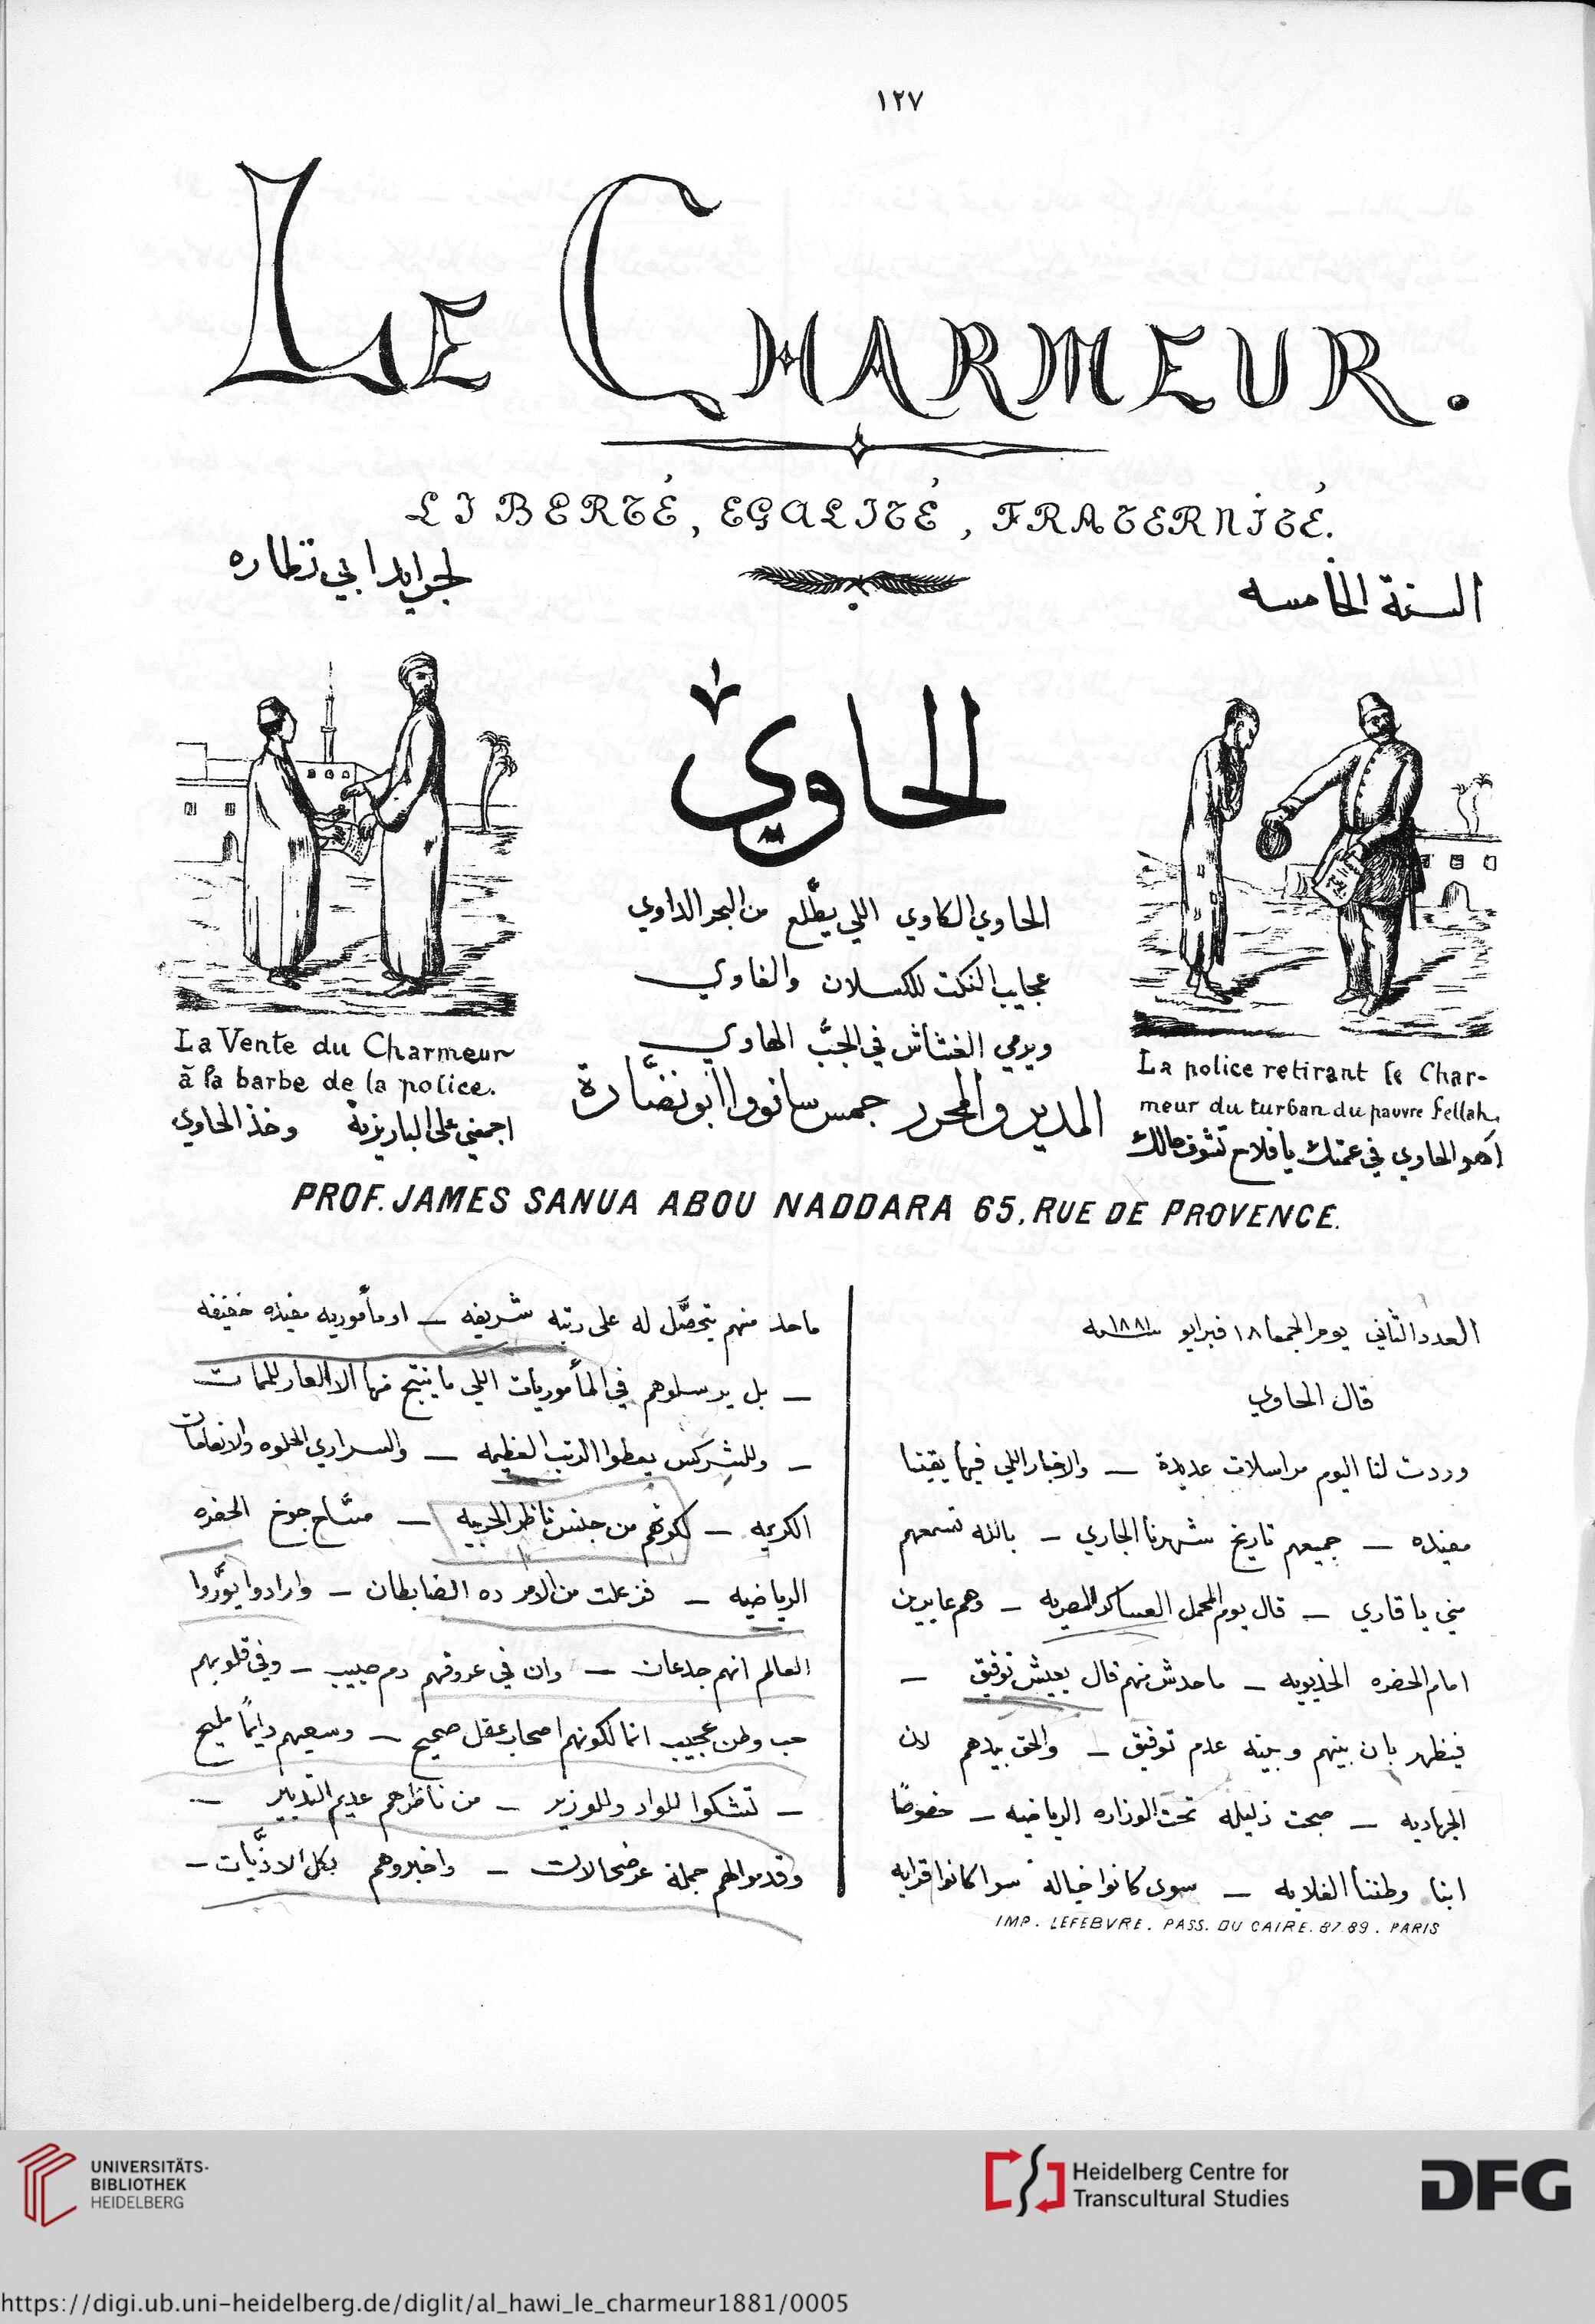 ١٢٧
LE CHARMEUR.
LIBERTÉ, EGALITÉ, FRATERNITÉ.
السنة الخامسه
لجرايد ابي نظاره
٢
الحاوي
الحاوي الكاوي اللي يطّلع من البحر الداوي
عجايب النكت للكسلان والغاوي
ويرمي الغشاش في الجبّ الهاوي
المدير والمحرر جمس سانووا ابو نضّارة
La Vente du Charmeur
à la barbe de la police.
وخذ الحاوي
La police retirant le Char-
meur du turban du pauvre fellah.
اهو الحاوي في عمتك يا فلاح تشوف حالك
PROF. JAMES SANUA ABOU NADDARA 65, RUE DE PROVENCE.
العدد الثاني يوم الجمعا ١٨ فبرايو سنة ١٨٨١
قال الحاوي
وردت لنا اليوم مراسلات عديدة – والاخبار اللي فيها يقينا
مفيده – جميعهم تاريخ شهرنا الجاري – بالله تسمعهم
مني يا قاري – قال يوم المحمل العساكر المصريه – وهم عابرين
امام الحضره الخديويه – ماحدش منهم قال يعيش توفيق –
فيظهر بان بينهم وبينه عدم توفيق – والحق بيدهم لان
الجهاديه – صبحت ذليله تحت الوزاره الرياضيه – خصوصًا
ابنا وطننا الفلايه – سوى كانوا خياله سوا كانوا قرابه
IMP. LEFEBVRE. PASS. DU CAIRE. 87.89. PARIS
ماحد منهم يتحصّل له على رتبه شريفه – او مأموريه مفيده خفيفه
– بل يرسلوهم في المأموريات اللي ما ينتج منها الا العار للممات
– وللشركس يعطوا الرتب العظيمه – والسراري الحلوه والانعامات
الكريمه – لكونهم من جنس ناظر الحربيه – مسّاح جوخ الحضره
الرياضيه – فزعلت من الامر ده الضابطان – وارادوا يورّوا
العالم انهم جدعان – وان في عروقهم دم حبيب – وفي قلوبهم
حب وطن عجيب انما لكونهم اصحاب عقل صحيح – وسعيهم دايمًا مليح
– تشكوا للواد وللوزير – من ناظرهم عديم التدبير –
وقدموا لهم جملة عرضحالات – واخبروهم بكل الاذيّات –
UNIVERSITÄTS-
BIBLIOTHEK
HEIDELBERG
Heidelberg Centre for
Transcultural Studies
DFG
https://digi.ub.uni-heidelberg.de/diglit/al_hawi_le_charmeur1881/0005